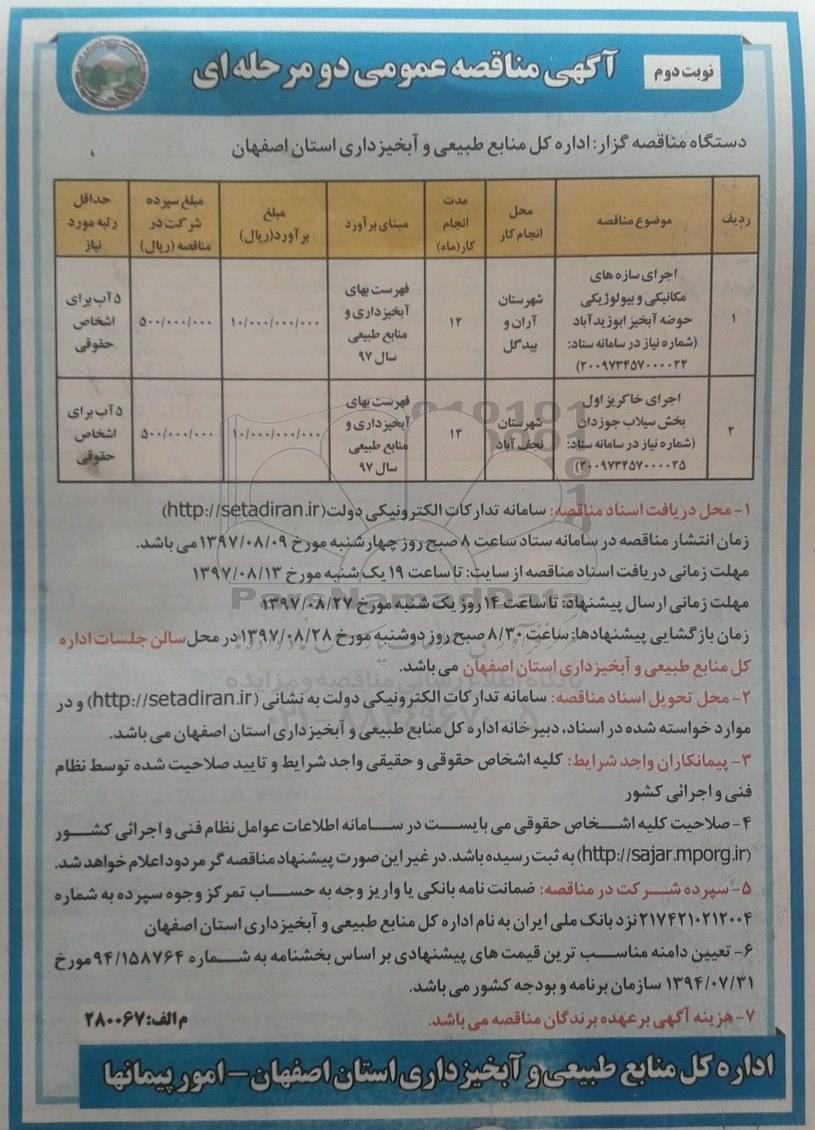 نوبت دوم
آگهی مناقصه عمومی دو مرحله ای
دستگاه مناقصه گزار: اداره کل منابع طبیعی و آبخیزداری استان اصفهان
ردیف
موضوع مناقصه
محل
انجام کار
مدت
انجام
کار(ماه)
مبنای برآورد
مبلغ
برآورد(ریال)
مبلغ سپرده
شرکت در
مناقصه (ریال)
حداقل
رتبه مورد
نیاز
۱
اجرای سازه های
مکانیکی و بیولوژیکی
حوضه آبخیز ابوزیدآباد
(شماره نیاز در سامانه ستاد:
۲۰۰۹۷۳۴۵۷۰۰۰۰۲۴)
شهرستان
آران و
بیدگل
۱۲
فهرست بهای
آبخیزداری و
منابع طبیعی
سال ۹۷
۱۰/۰۰۰/۰۰۰/۰۰۰
۵۰۰/۰۰۰/۰۰۰
۵ آب برای
اشخاص
حقوقی
۲
اجرای خاکریز اول
بخش سیلاب جوزدان
(شماره نیاز در سامانه ستاد:
۲۰۰۹۷۳۴۵۷۰۰۰۰۲۵)
شهرستان
نجف آباد
۱۲
فهرست بهای
آبخیزداری و
منابع طبیعی
سال ۹۷
۱۰/۰۰۰/۰۰۰/۰۰۰
۵۰۰/۰۰۰/۰۰۰
۵ آب برای
اشخاص
حقوقی
۱- محل دریافت اسناد مناقصه: سامانه تدارکات الکترونیکی دولت (http://setadiran.ir)
زمان انتشار مناقصه در سامانه ستاد ساعت ۸ صبح روز چهارشنبه مورخ ۱۳۹۷/۰۸/۰۹ می باشد.
مهلت زمانی دریافت اسناد مناقصه از سایت: تا ساعت ۱۹ یک شنبه مورخ ۱۳۹۷/۰۸/۱۳
مهلت زمانی ارسال پیشنهاد: تا ساعت ۱۴ روز یک شنبه مورخ ۱۳۹۷/۰۸/۲۷
زمان بازگشایی پیشنهادها: ساعت ۸/۳۰ صبح روز دوشنبه مورخ ۱۳۹۷/۰۸/۲۸ در محل سالن جلسات اداره
کل منابع طبیعی و آبخیزداری استان اصفهان می باشد.
۲- محل تحویل اسناد مناقصه: سامانه تدارکات الکترونیکی دولت به نشانی (http://setadiran.ir) و در
موارد خواسته شده در اسناد، دبیرخانه اداره کل منابع طبیعی و آبخیزداری استان اصفهان می باشد.
۳- پیمانکاران واجد شرایط: کلیه اشخاص حقوقی و حقیقی واجد شرایط و تایید صلاحیت شده توسط نظام
فنی و اجرائی کشور
۴- صلاحیت کلیه اشخاص حقوقی می بایست در سامانه اطلاعات عوامل نظام فنی و اجرائی کشور
(http://sajar.mporg.ir) به ثبت رسیده باشد. در غیر این صورت پیشنهاد مناقصه گر مردود اعلام خواهد شد.
۵- سپرده شرکت در مناقصه: ضمانت نامه بانکی یا واریز وجه به حساب تمرکز وجوه سپرده به شماره
۲۱۷۴۲۱۰۲۱۲۰۰۴ نزد بانک ملی ایران به نام اداره کل منابع طبیعی و آبخیزداری استان اصفهان
۶- تعیین دامنه مناسب ترین قیمت های پیشنهادی بر اساس بخشنامه به شماره ۹۴/۱۵۸۷۶۴ مورخ
۱۳۹۴/۰۷/۳۱ سازمان برنامه و بودجه کشور می باشد.
۷- هزینه آگهی بر عهده برندگان مناقصه می باشد.
م الف: ۲۸۰۰۶۷
اداره کل منابع طبیعی و آبخیزداری استان اصفهان - امور پیمانها
ParsNamadData
پایگاه اطلاع رسانی مناقصه و مزایده